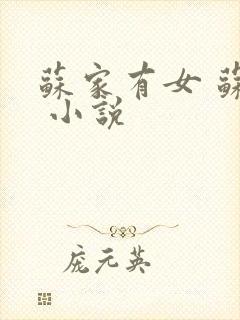 蘇家有女 蘇
小說
庞元英